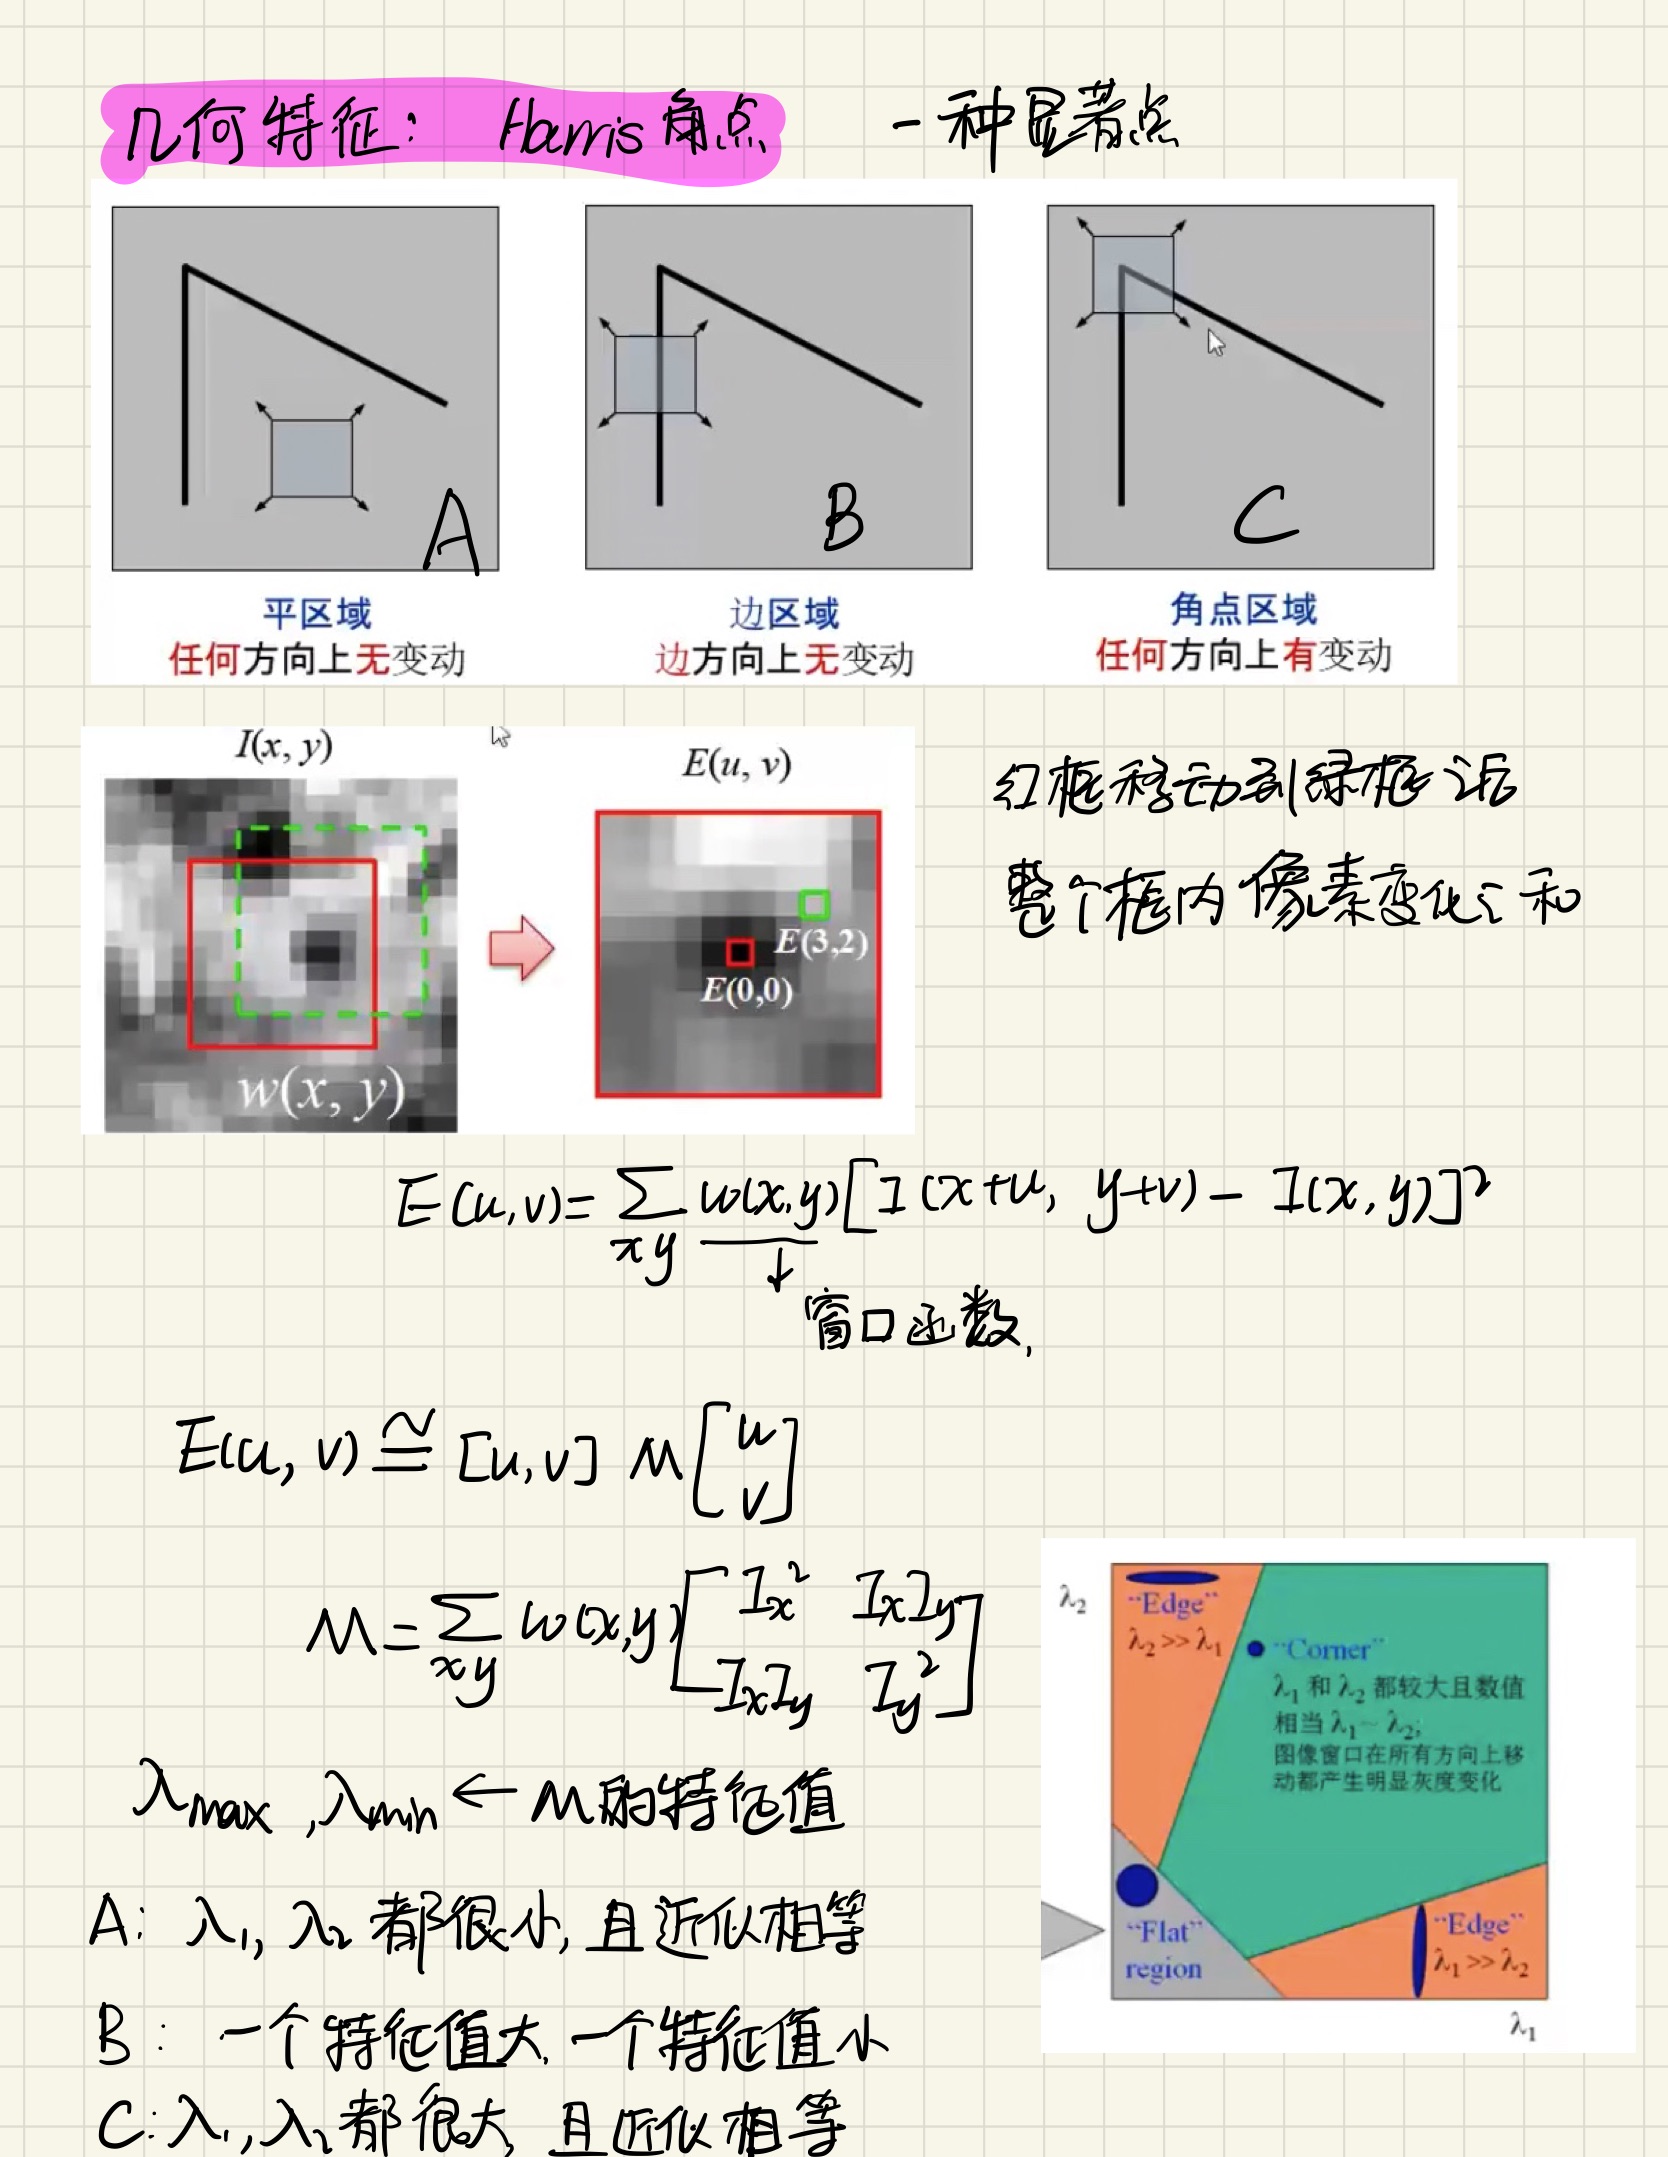 几何特征: Harris角点 一种显著点
A
B
C
平区域
任何方向上无变动
边区域
边方向上无变动
角点区域
任何方向上有变动
I(x, y)
E(u, v)
w(x, y)
E(3,2)
E(0,0)
红框移动到绿框后
整个框内像素变化之和
E(u,v)=∑xy w(x,y)[I(x+u, y+v) - I(x,y)]²
窗口函数,
E(u,v) ≅ [u,v] M [u v]
M=∑xy w(x,y) [Ix² IxIy
IxIy Iy²]
λmax, λmin ← M的特征值
A: λ1, λ2 都很小, 且近似相等
B: 一个特征值大, 一个特征值小
C: λ1, λ2 都很大, 且近似相等
λ2
“Edge”
λ2 >> λ1
“Corner”
λ1 和 λ2 都较大且数值
相当 λ1 ~ λ2;
图像窗口在所有方向上移
动都产生明显灰度变化
“Flat”
region
“Edge”
λ1 >> λ2
λ1